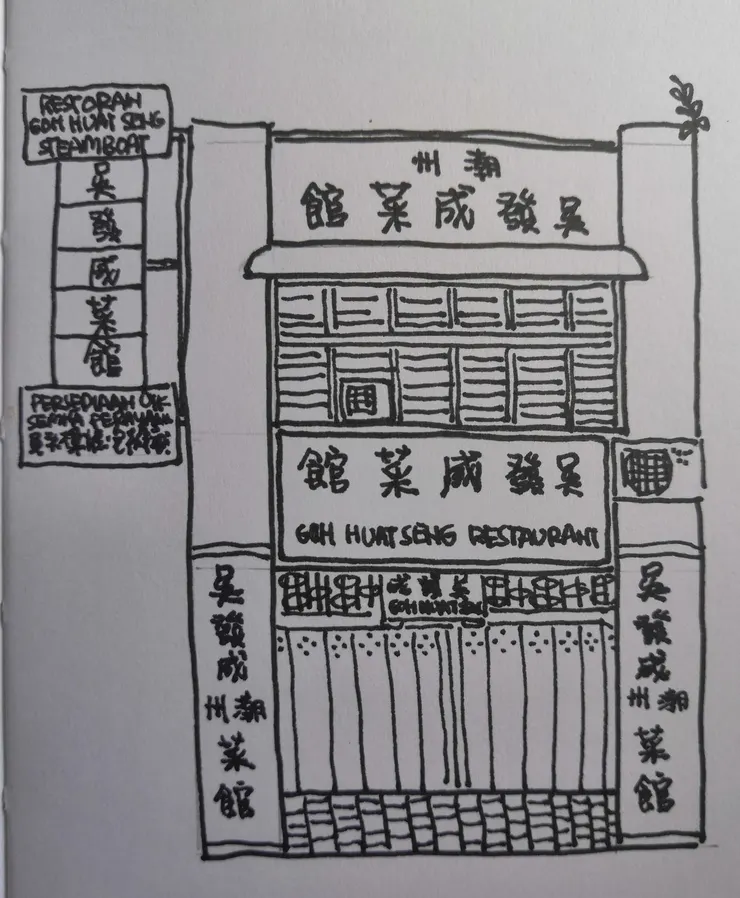 RESTORAN
GOH HUAT SENG
STEAMBOAT
吳發成菜館
PERSEDIAAN UTK
SEMUA PERAYAAN
潮州
吳發成菜館
吳發成菜館
GOH HUAT SENG RESTAURANT
GOH HUAT SENG
吳發成潮州菜館
吳發成潮州菜館